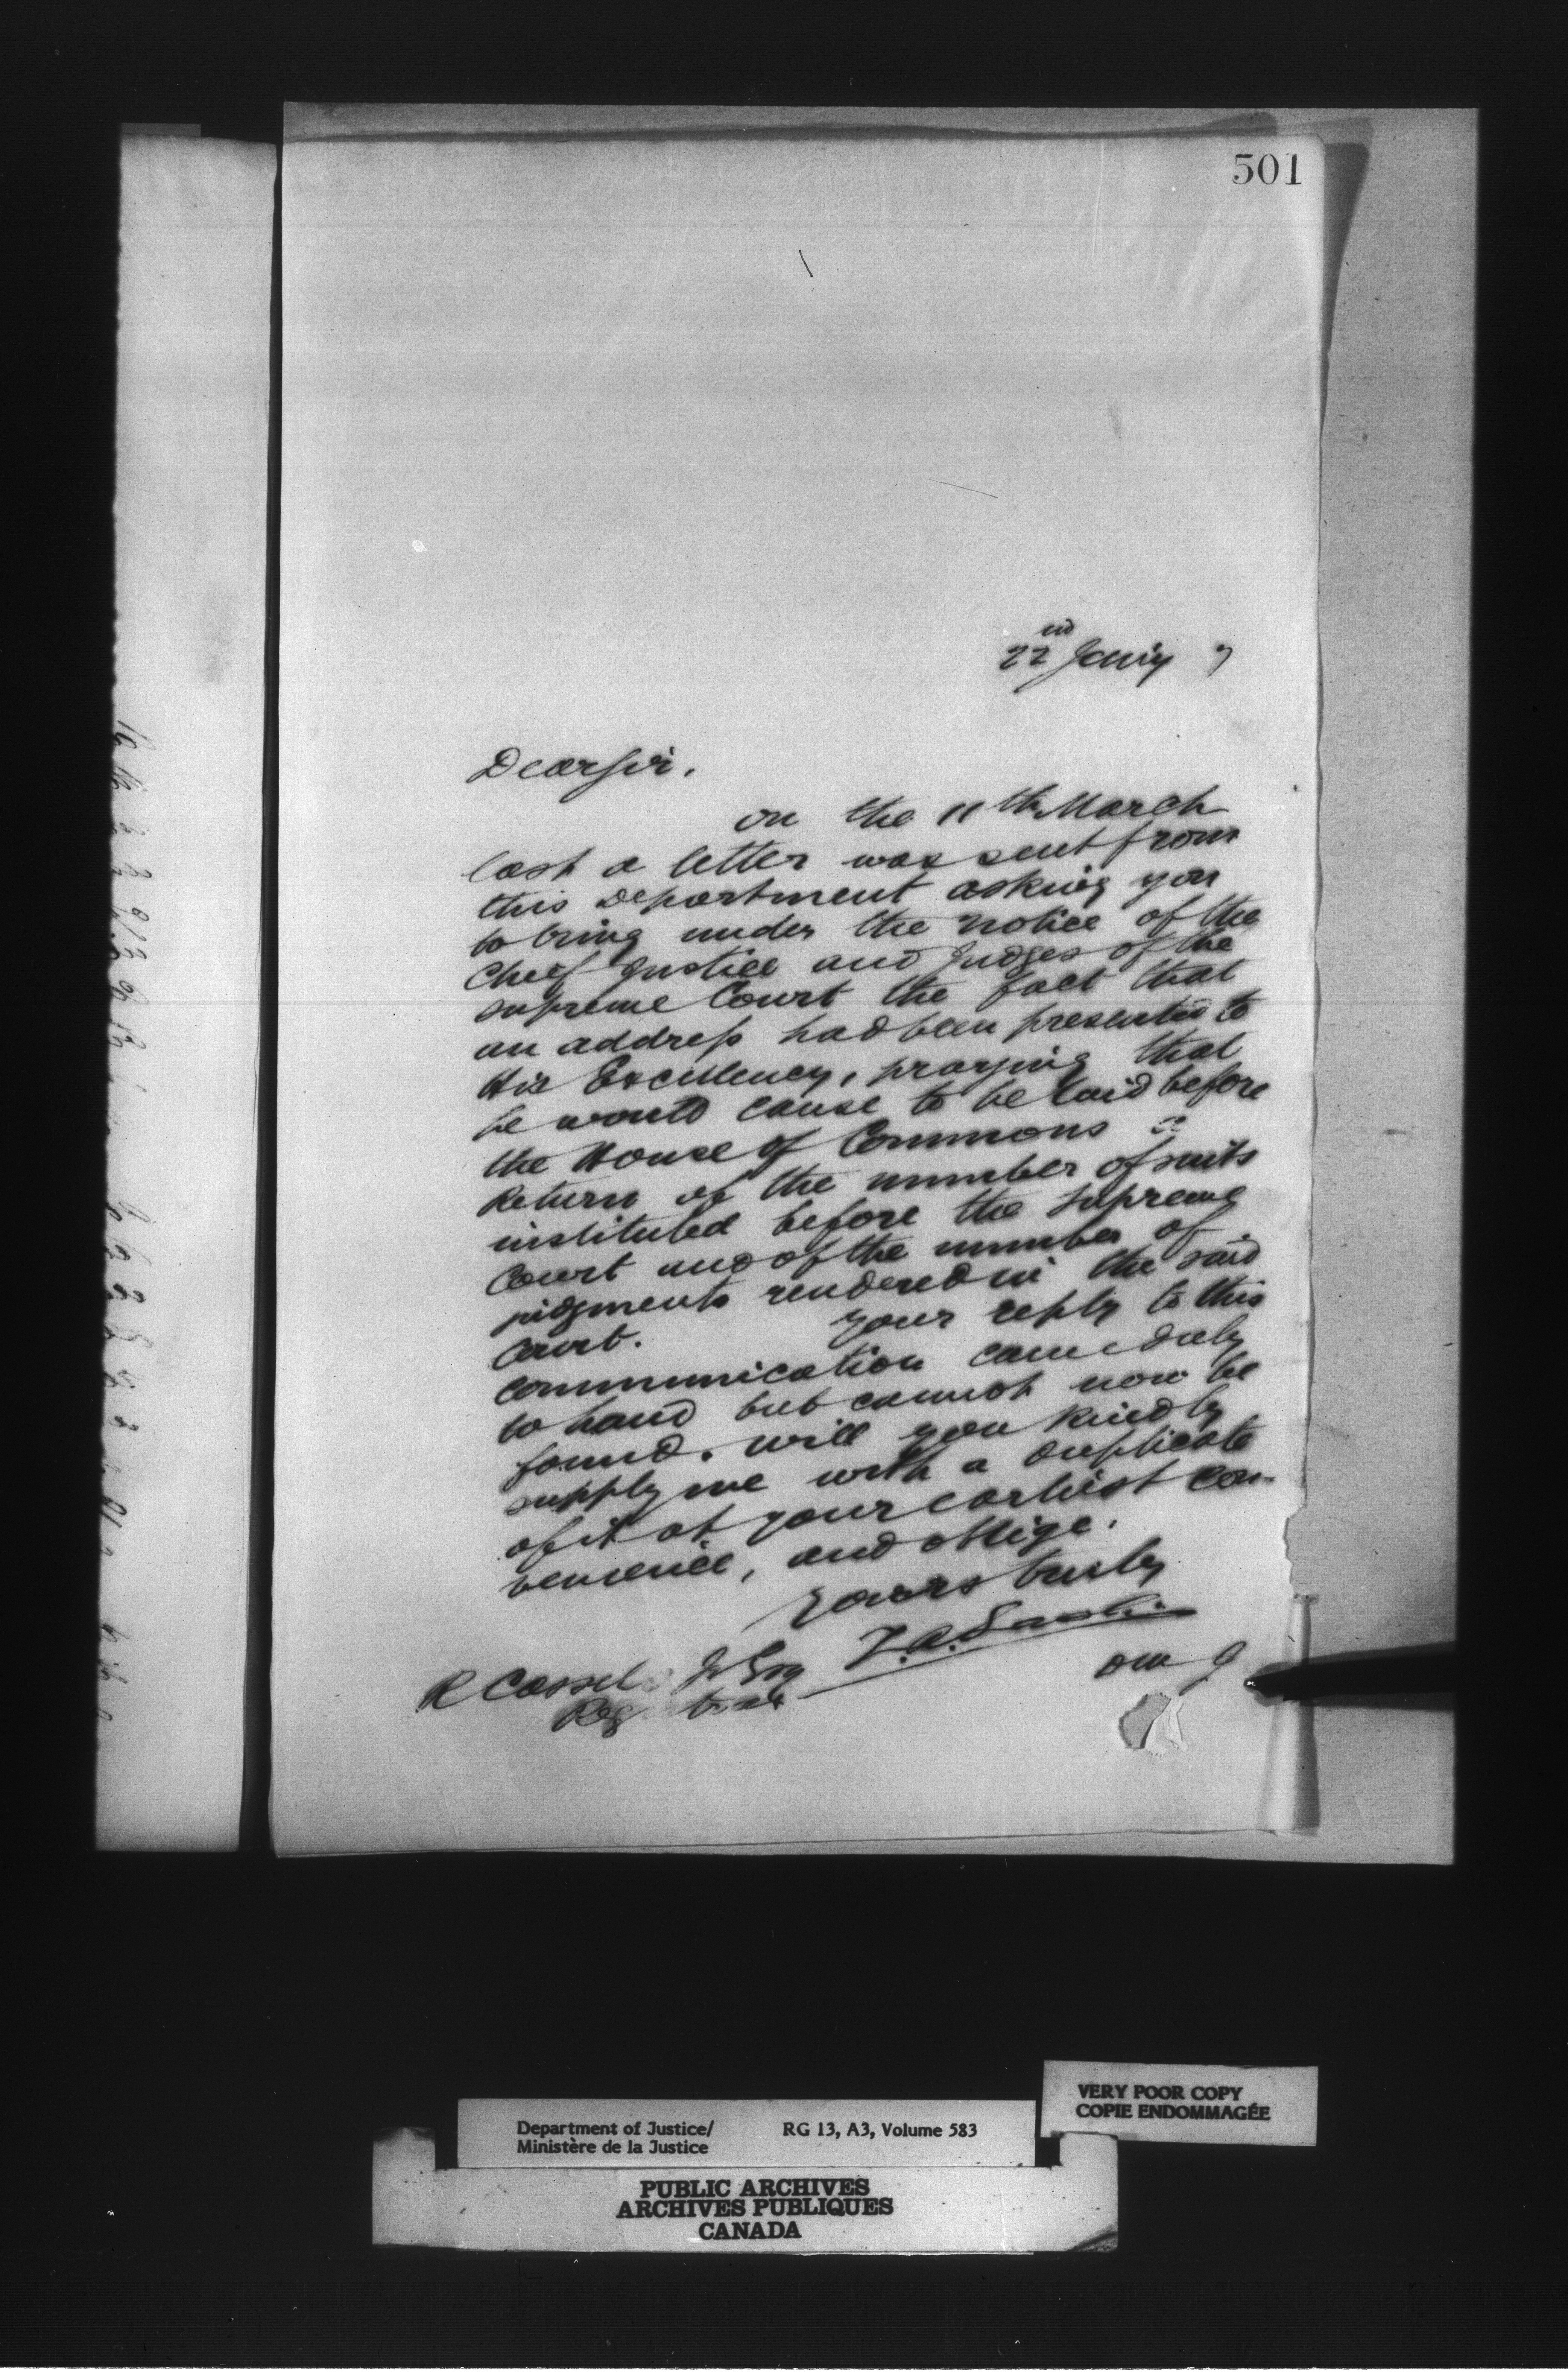 501
22nd Jany 7
Dear Sir,
on the 11th March
last a letter was sent from
this Department asking you
to bring under the notice of the
Chief Justice and Judges of the
Supreme Court the fact that
an address had been presented to
His Excellency, praying that
he would cause to be laid before
the House of Commons a
Return of the number of suits
instituted before the Supreme
Court and of the number of
judgments rendered in the said
Court. Your reply to this
communication came duly
to hand but cannot now be
found. Will you kindly
supply me with a duplicate
of it at your earliest con-
venience, and oblige.
Yours truly
R Cassels Jr Esq
Registrar
Department of Justice/
Ministère de la Justice
RG 13, A3, Volume 583
VERY POOR COPY
COPIE ENDOMMAGÉE
PUBLIC ARCHIVES
ARCHIVES PUBLIQUES
CANADA